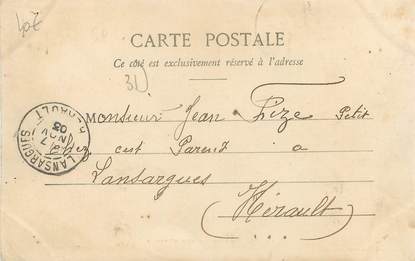 40E
CARTE POSTALE
Ce côté est exclusivement réservé à l'adresse
MONSIEUR Jean Fize Petit
chez ces Parents à
Lansargues
(Hérault)
LANSARGUES
HÉRAULT
7
NOV
03